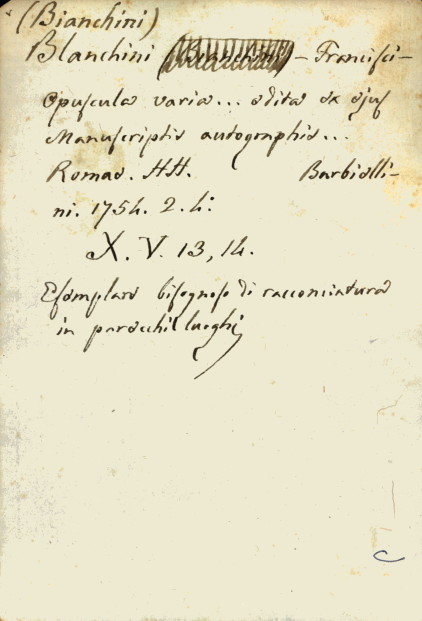 (Bianchini)
Blanchini - Francisci -
Opuscula varia... edita ex ejus
Manuscriptis autographis...
Romae. HH. Barbielli-
ni. 1754. 2. 4:
X. V. 13, 14.
Esemplare bisognoso di racconciatura
in parecchi luoghi